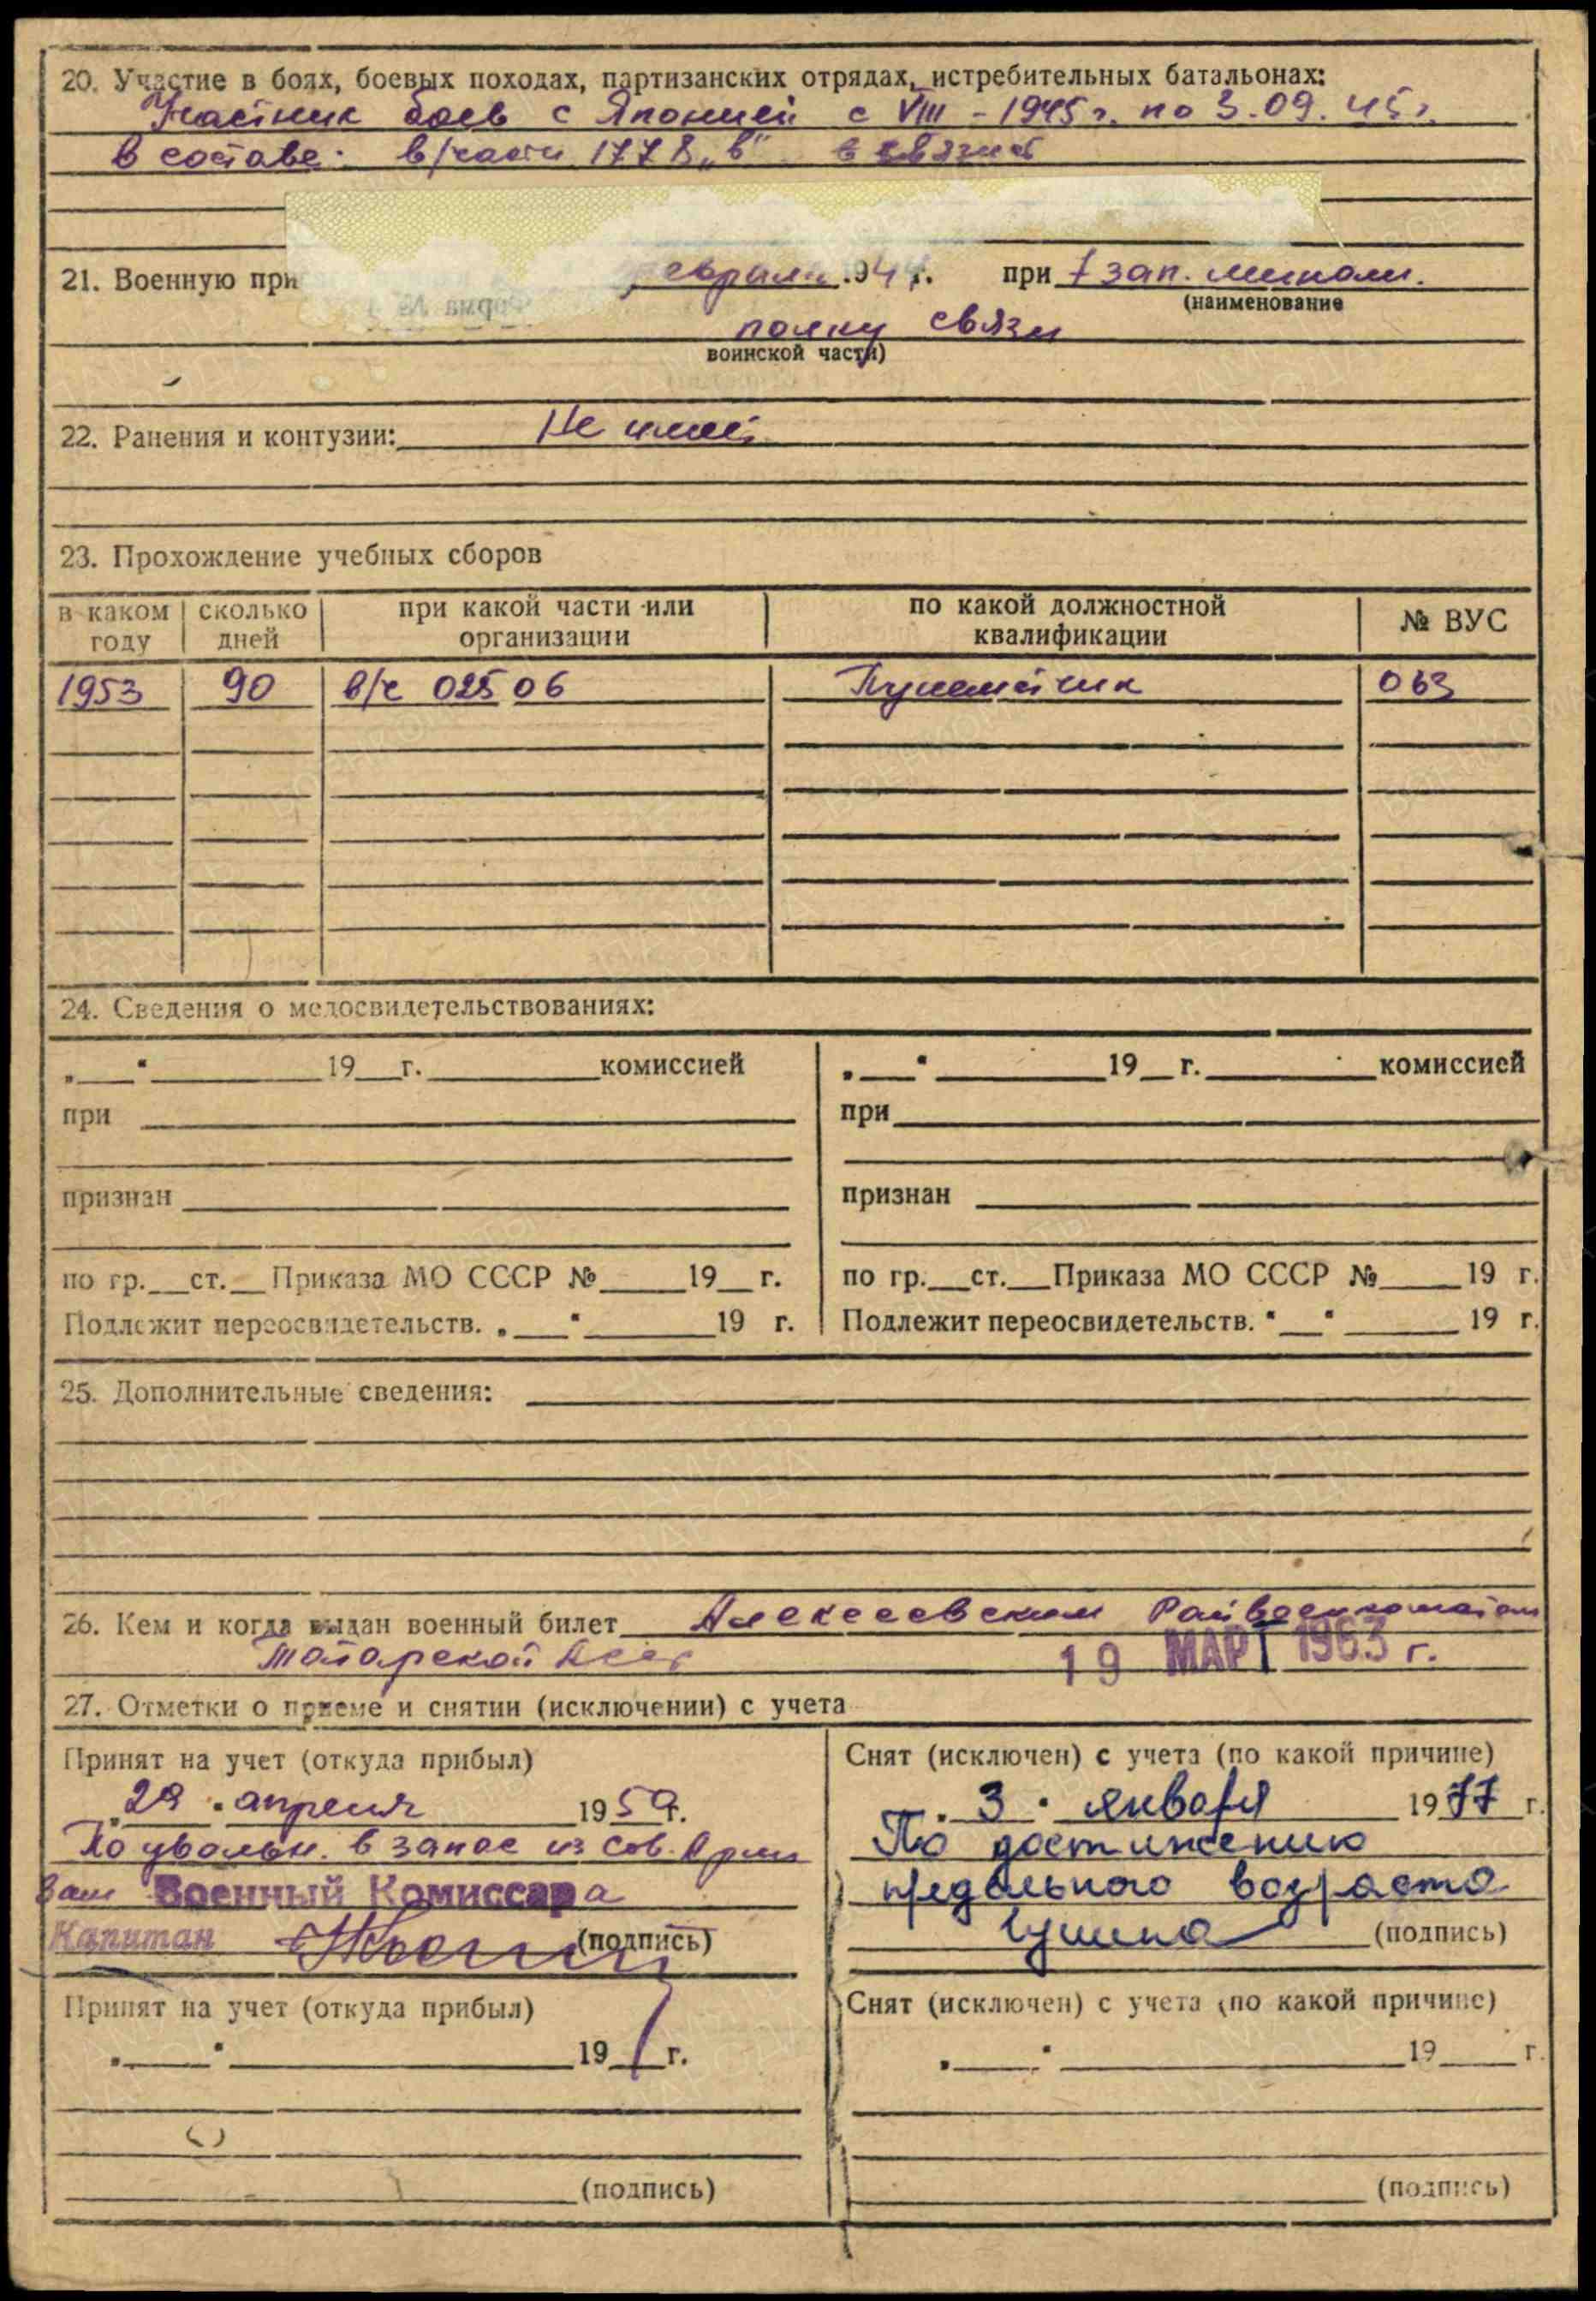 20. Участие в боях, боевых походах, партизанских отрядах, истребительных батальонах:
Участник боев с Японией с VIII - 1945 г. по 3.09.45 г.
в составе: в/части 1778 „в"
21. Военную при
евраля 194 г. при 1 зап.
(наименование
полку связи
воинской части)
22. Ранения и контузии: Не имеет
23. Прохождение учебных сборов
в каком году | сколько дней | при какой части или организации | по какой должностной квалификации | № ВУС
1953 | 90 | в/ч 02506 | Пулеметчик | 063
24. Сведения о медосвидетельствованиях:
„ " 19 г. комиссией
при
признан
по гр. ст. Приказа МО СССР № 19 г.
Подлежит переосвидетельств. „ " 19 г.
„ " 19 г. комиссией
при
признан
по гр. ст. Приказа МО СССР № 19 г.
Подлежит переосвидетельств. " " 19 г.
25. Дополнительные сведения:
26. Кем и когда выдан военный билет Алексеевским Райвоенкоматом
Татарской АССР 19 МАРТ 1963 г.
27. Отметки о приеме и снятии (исключении) с учета
Принят на учет (откуда прибыл)
„29 " апреля 1950 г.
По увольн. в запас из Сов. Арми
Военный Комиссар а
Капитан (подпись)
Снят (исключен) с учета (по какой причине)
„ 3 " января 1977 г.
По достижению
предельного возраста
(подпись)
Принят на учет (откуда прибыл)
„ " 19 г.
(подпись)
Снят (исключен) с учета (по какой причине)
„ " 19 г.
(подпись)